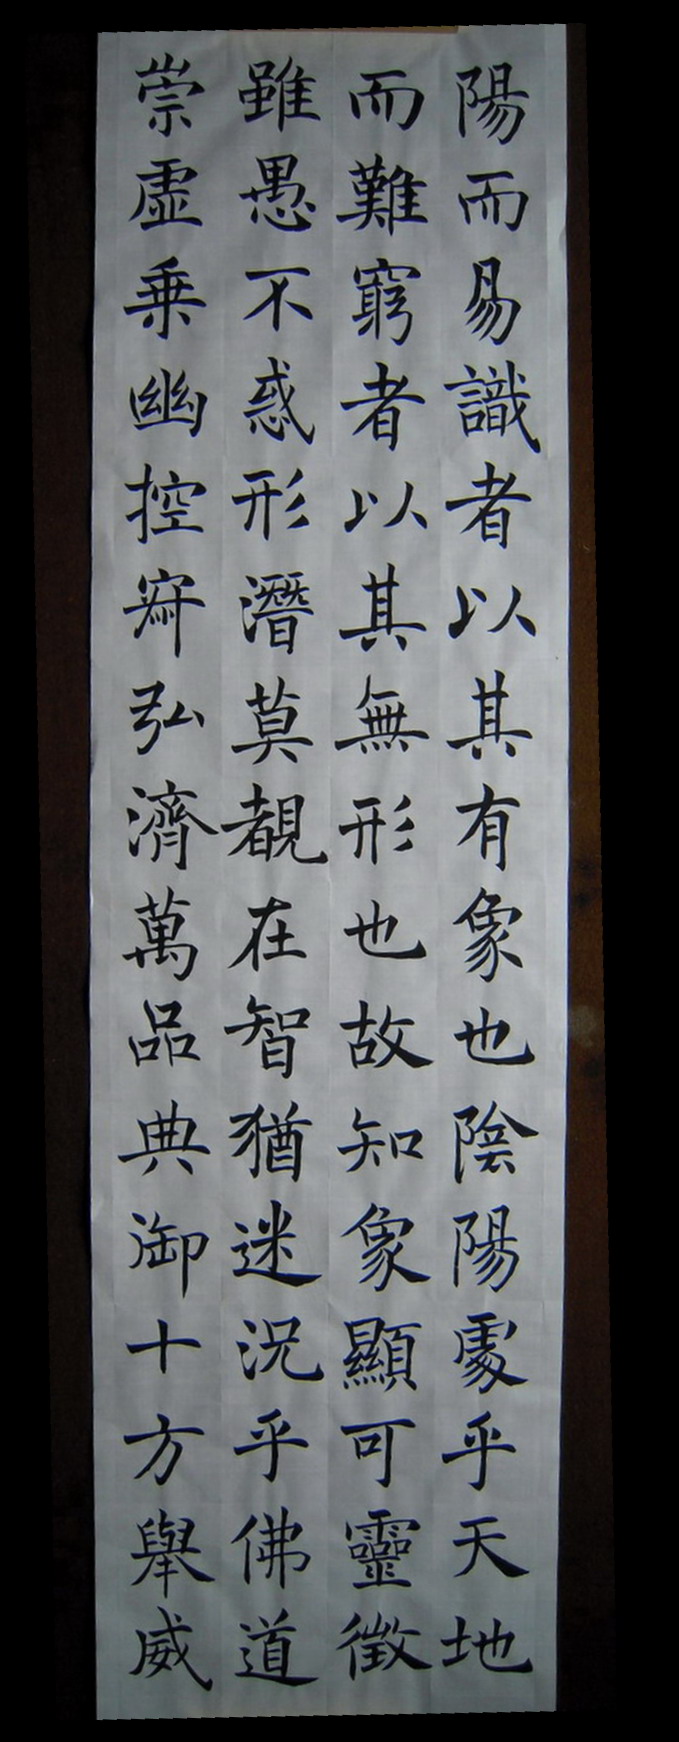 陽而易識者以其有象也陰陽處乎天地
而難窮者以其無形也故知象顯可靈徵
雖愚不惑形潛莫覩在智猶迷況乎佛道
崇虛乗幽控寂弘濟萬品典御十方舉威